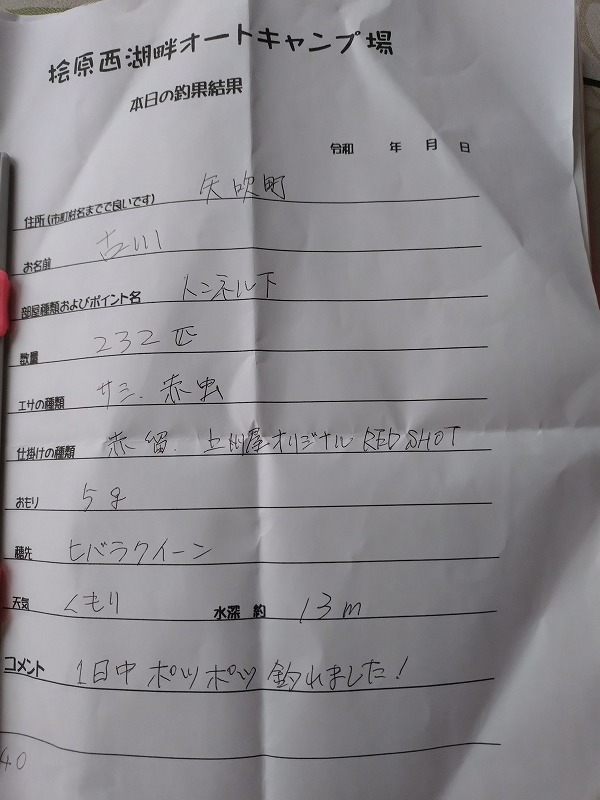 桧原西湖畔オートキャンプ場
本日の釣果結果
令和 年 月 日
住所(市町村名までで良いです) 矢吹町
お名前 古川
部屋種類およびポイント名 トンネル下
数量 232匹
エサの種類 サシ. 赤虫
仕掛けの種類 赤留. 上州屋オリジナル RED SHOT
おもり 5g
穂先 ヒバラクイーン
天気 くもり 水深 約 13m
コメント 1日中 ポツポツ 釣れました!
40